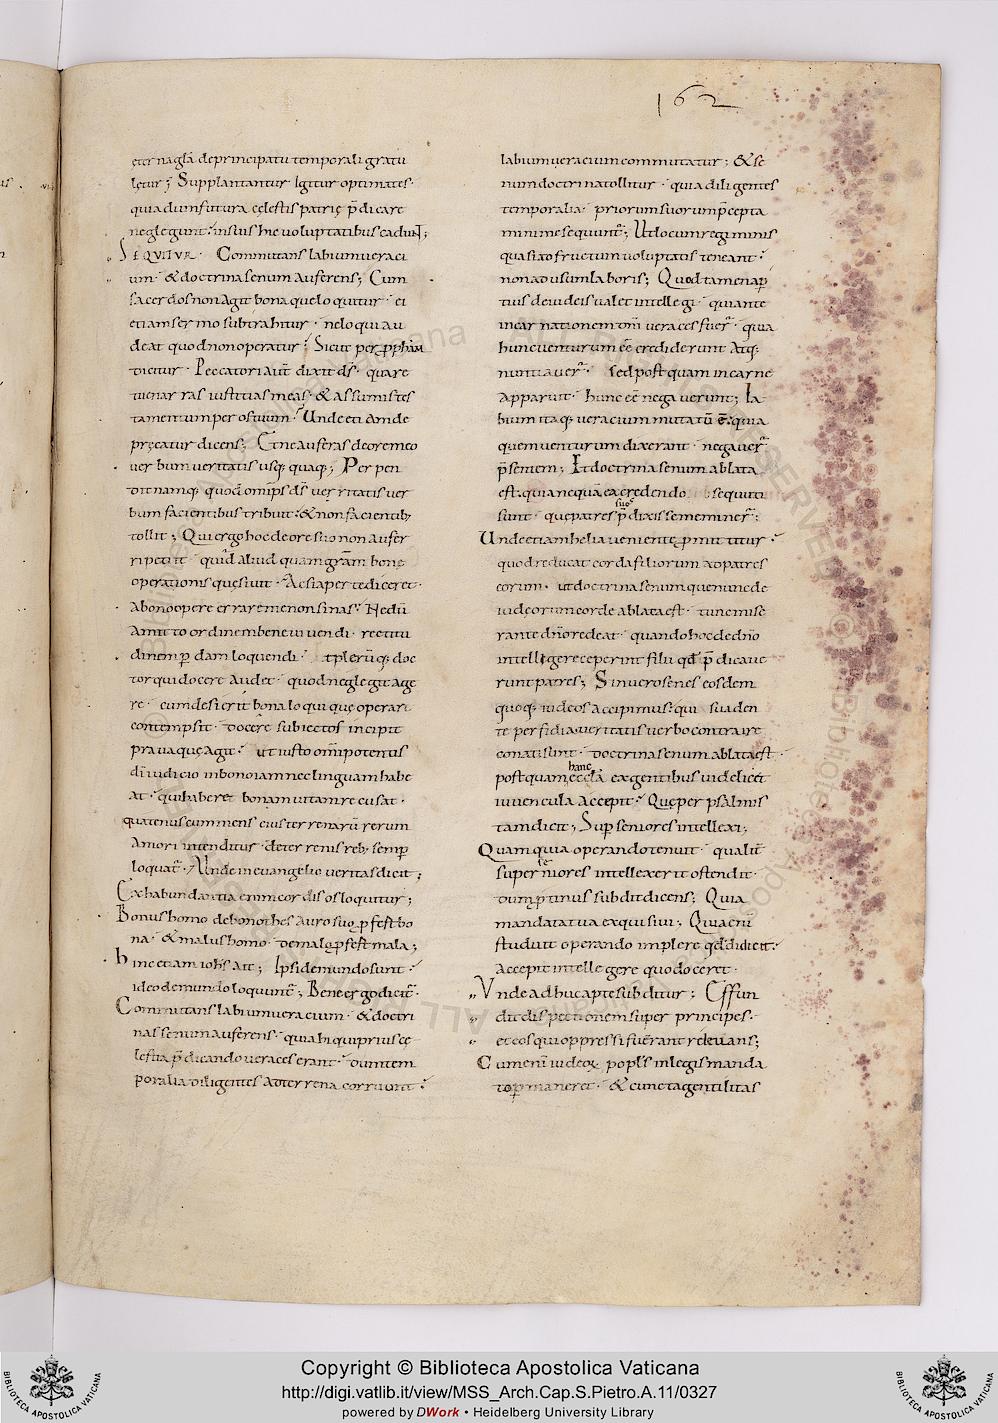 162
eterna glã de principatu temporali gratu
lẹtur ; Supplantantur igitur optimates
quia dum futura cęlestis patrię p̄dicare
neglegunt in suis hic voluptatibus cadunt ;
SEQUITUR . Commutans labium veraci
um . & doctrina senum auferens ; Cum
sacerdos non agit bona que loquitur . ei
etiam sermo subtrahitur . ne loqui au
deat quod non operatur ; Sicut per ꝓphã
dicitur . Peccatori aut̃ dixit d̃s . quare
tu enarras iustitias meas . & assumis tes
tamentum per os tuum . Unde etiam de
pręcatur dicens ; Et ne auferas de ore meo
verbum veritatis usq; quaq; ; Per pen
dit namq; quod omip̃s d̃s veritatis ver
bum facientibus tribuit . & non facientib;
tollit ; Qui ergo hoc de ore suo non aufer
ri petiit . quid aliud quam gr̃am bonę
operationis quęsivit . Ac si aperte diceret .
a bono opere errare me non sinas . Ne dũ
amitto ordinem bene vivendi . rectitu
dinem ꝑdam loquendi . plerũq; doc
tor qui docere audet . quod neglegit age
re . cum desierit bona loqui quę operari
contempsit . docere subiectos incipit
prava quę agit . ut iusto om̃ipotentis
d̃i iudicio in bono iam nec linguam habe
at . qui habere bonam vitam recusat .
quatenus cum mens eius terrenarũ rerum
amori intenditur . de terrenis reb; semp̱
loquat̃ . Unde in evangelio veritas dicit ;
Ex habundantia enim cordis os loquitur ;
Bonus homo de bono thesauro suo ꝓfert bo
na . & malus homo de malo ꝓfert mala ;
Hinc etiam ioh̃s ait ; Ipsi de mundo sunt .
ideo de mundo loquunt̃ ; Bene ergo dicit̃ .
Commutans labium veracium . & doctri
nas senum auferens . quia hi qui prius cę
lestia p̄dicando veraces erant . dum tem
poralia diligentes ad terrena corruunt .
labium veracium commutatur ; & se
num doctrina tollitur . quia diligentes
temporalia . priorum suorum p̄cepta
minime sequunt̃ ; Ut locum regiminis
quasi ad fructum voluptatis teneant .
non ad usum laboris ; Quod tamen ap̱
tius de iudeis valet intellegi . qui ante
incarnationem dñi veraces fuer̃ . quia
hunc venturum ee̅ crediderunt atq;
nuntiaver̃ . sed postquam in carne
apparuit . hunc ee̅ negaverunt ; La
bium itaq; veracium mutatũ e̅ . quia
quem venturum dixerant . negaver̃
p̄sentem ; Et doctrina senum ablata
est . quia nequã ea credendo secuti
sunt . quę patres suos p̄dixisse meminer̃ ;
Unde etiam helia veniente ꝓmittitur .
quod reducat corda filiorum ad patres
eorum . ut doctrina senum que nunc de
iudeorum corde ablata est . tunc mise
rante dño redeat . quando hoc de dño
intellegere ceperint filii qđ p̄dicave
runt patres ; Si vero senes eosdem
quoq; iudeos accipimus . qui suaden
te perfidia veritatis verbo contraire
conati sunt . doctrina senum ablata est .
postquam hanc eccl̃a ex gentibus videlicet
iuvencula accepit . Quę per psalmis
tam dicit ; Sup̱ seniores intellexi ;
Quam quia operando tenuit . qualit̃
super seniores intellexerit ostendit .
dum ꝓtinus subdit dicens ; Quia
mandata tua exquisivi . Quia eni̅
studuit operando implere qđ didicit .
accepit intellegere quod doceret .
Unde adhuc apte subditur ; Effun
dit dispectionem super principes .
et eos qui oppressi fuerant relevans ;
Cum eni̅ iudeoꝝ popl̃s in legis manda
to ꝑmaneret . & cuncta gentilitas
Copyright © Biblioteca Apostolica Vaticana
http://digi.vatlib.it/view/MSS_Arch.Cap.S.Pietro.A.11/0327
powered by DWork • Heidelberg University Library